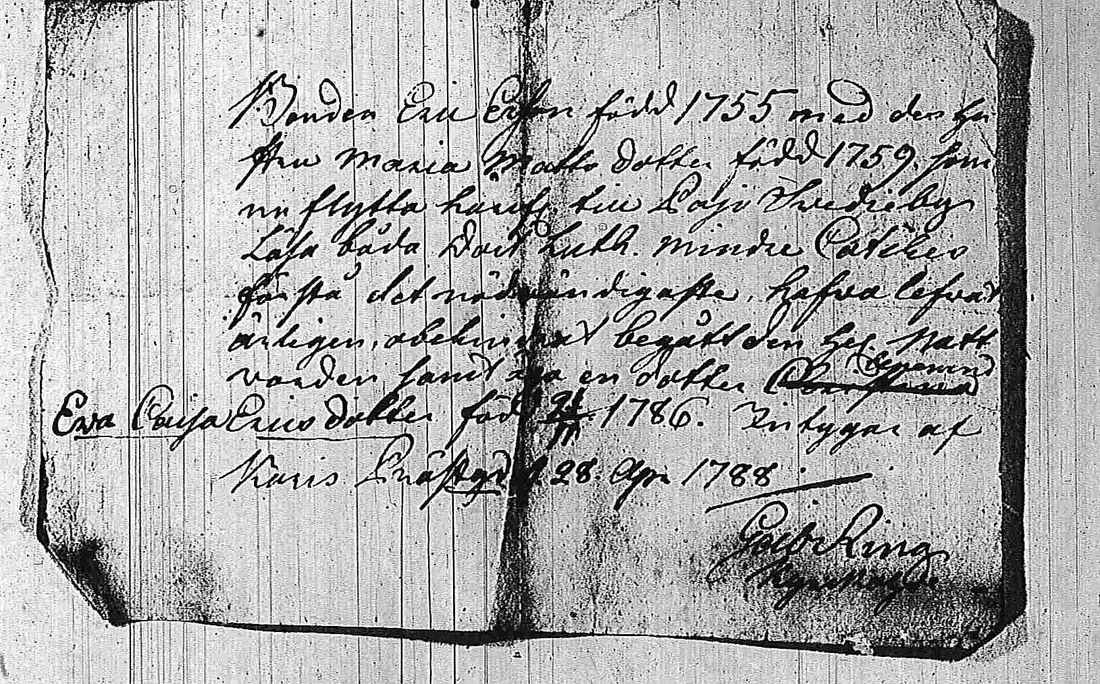 Bonden Eric Ersson född 1755 med des Hu
stru Maria Matts dotter född 1759. som
nu flytta härifr till Pojo Swedjeby
Läsa båda Doct Luth. mindre Catches
förstå det nödvändigaste, hafva lefvat
ärligen, obehindrat begått den Hel. Natt
varden samt äga en dotter
Eva Cajsa Erics dotter född 1786. Intygar af
Karis Prästgd d. 28. Apr 1788
Ring